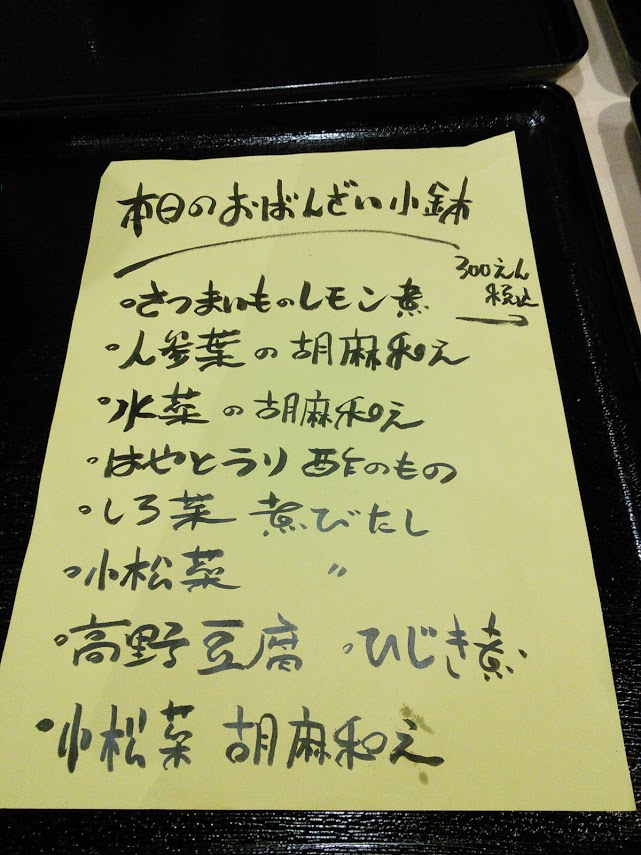 本日のおばんざい小鉢
300えん
税込
・さつまいものレモン煮
・人参葉の胡麻和え
・水菜の胡麻和え
・はやとうり 酢のもの
・しろ菜 煮びたし
・小松菜 〃
・高野豆腐 ・ひじき煮
・小松菜 胡麻和え